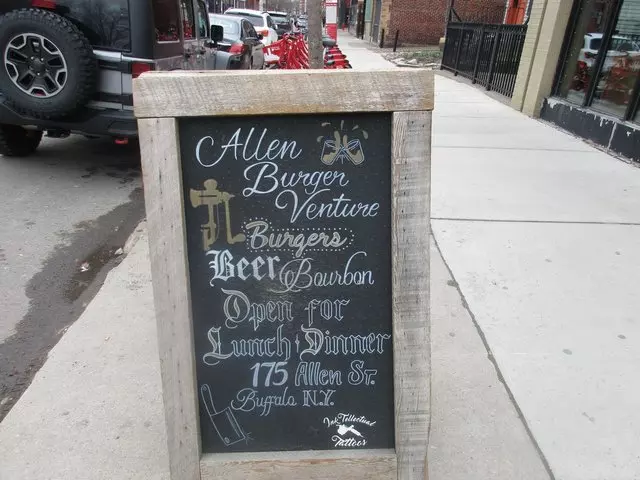 Allen
Burger
Venture
Burgers
Beer Bourbon
Open for
Lunch & Dinner
175 Allen St.
Buffalo N.Y.
Ink Tellectual
Tattoos